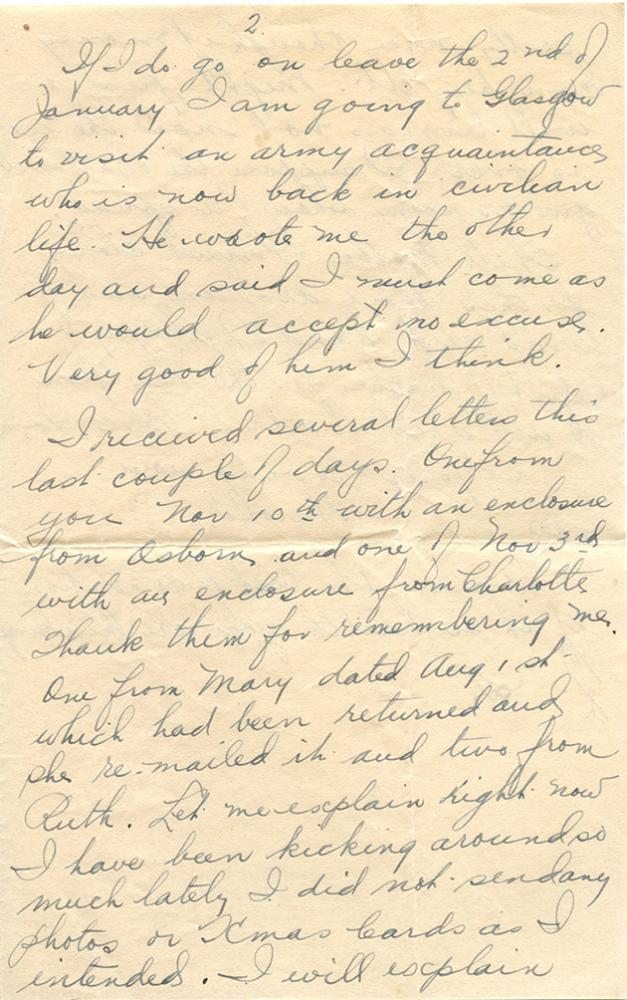 2.
If I do go on leave the 2nd of
January I am going to Glasgow
to visit an army acquaintance
who is now back in civilian
life. He wrote me the other
day and said I must come as
he would accept no excuse.
Very good of him I think.
I received several letters this
last couple of days. One from
you Nov 10th with an enclosure
from Osborn, and one of Nov 3rd
with an enclosure from Charlotte
Thank them for remembering me.
One from Mary dated Aug 1st
which had been returned and
she re-mailed it and two from
Ruth. Let me explain right now
I have been kicking around so
much lately I did not send any
photos or Xmas Cards as I
intended. I will explain